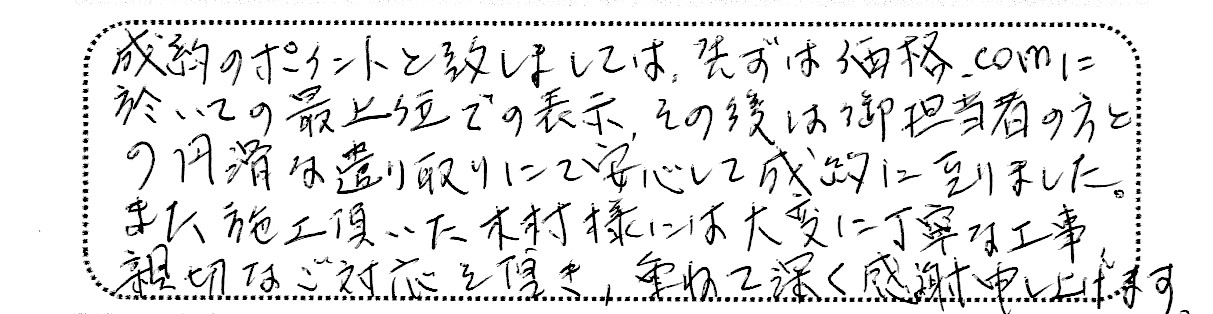 成約のポイントと致しましては、先ずは価格.comに
於いての最上位での表示、その後は御担当者の方と
の円滑な遣り取りにて安心して成約に至りました。
また、施工頂いた木村様には大変に丁寧な工事、
親切なご対応を頂き、重ねて深く感謝申し上げます。